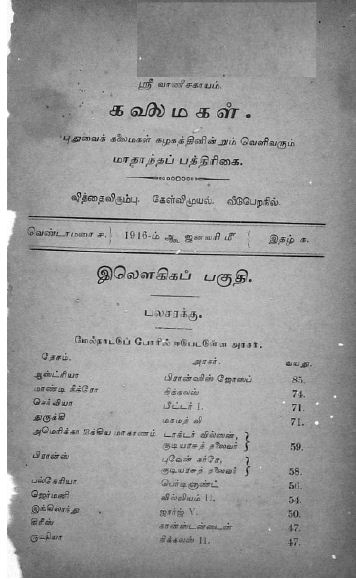 ஸ்ரீ வாணீசகாயம்.
கலைமகள்.
புதுவைக் கலைமகள் கழகத்தினின்றும் வெளிவரும்
மாதாந்தப் பத்திரிகை.
வித்தைவிரும்பு. கேள்விமுயல். வீடுபெறநில்.
வெண்டாமரை ௪. } 1916-ம் ௵ ஜனவரி ௴ { இதழ் ௧.
இலௌகிகப் பகுதி.
பலசரக்கு.
மேல்நாட்டுப் போரில் ஈடுபட்டுள்ள அரசர்.
தேசம். அரசர். வயது.
ஆஸ்ட்ரியா பிரான்ஸிஸ் ஜோஸப் 85.
மாண்டி நீக்ரோ நிக்கலஸ் 74.
செர்வியா பீட்டர் I. 71.
துருக்கி மாமத் வி 71.
அமெரிக்கா ஐக்கிய மாகாணம் டாக்டர் வில்ஸன், }
குடியரசுத் தலைவர் } 59.
பிரான்ஸ் புவேன் கர்ரே, }
குடியரசுத் தலைவர் } 58.
பல்கேரியா பெர்டினண்ட் 56.
ஜெர்மனி வில்லியம் II. 54.
இங்கிலாந்து ஜார்ஜ் V. 50.
கிரீஸ் கான்ஸ்டன்டைன் 47.
ருஷியா நிக்கலஸ் II. 47.